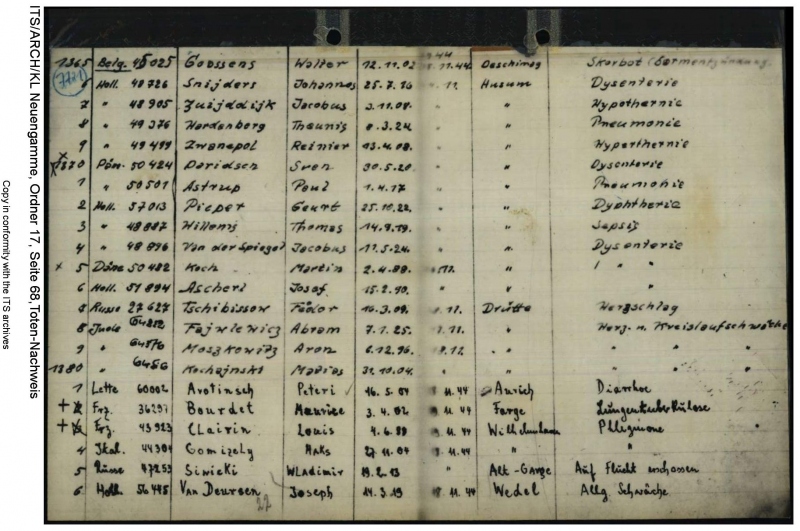 ITS/ARCH/KL Neuengamme, Ordner 17, Seite 68,Toten-Nachweis
Copy in conformity with the ITS archives
1365 Belg. 45025 Goossens Walter 12.11.02 11.44 Deschimag Skorbot
(7721) 6 Holl. 48726 Snijders Johannes 25.7.16 11. Husum Dysenterie
7 " 48905 Zuijddijk Jacobus 3.11.08. " Hypothernie
8 " 49376 Hardenberg Theunis 3.24 " Pneumonie
9 " 49499 Zwanepol Reinier 13.4.08. " Hyperthernie
1370 Dän. 50424 Davidsen Sven 30.5.20. " Dysenterie
1 " 50501 Astrup Poul 1.4.17 " Pneumonie
2 Holl. 57013 Pieper Geurt 25.10.22. " Dyphtherie
3 " 48887 Willems Thomas 14.9.19. " Sepsis
4 " 48896 Van der Spiegel Jacobus 17.5.24. " Dysenterie
x 5 Däne 50482 Koch Martin 2.4.89. 11. " " "
6 Holl. 57894 Ascheri Josef 15.2.90. " " "
Russe 27627 Tschibissow Fédor 16.3.09. 11. Drütte Herzschlag
8 Jude Fajwlewicz Abram 7.1.25. 11. " Herz. u. Kreislaufschwäche
9 " Moszkowitz Aron 6.12.96. 11. " " "
1380 " Kochajnski 31.10.04. " " " "
1 Lette 60002 Avotinsch Peteri 16.5.04 11.44 Aurich Diarrhoe
+ 2 Frz. 36297 Bourdet Maurice 3.4.02 11.44 Farge Lungentuberkulose
+ Frz. 43923 Clairin Louis 4.6.89 11.44 Wilhelmshaven Phlegmone
4 Ital. 44304 Gomizely Maks 27.11.04 11.44 " "
5 Russe 47253 Siwicki Wladimir 19.2.13 " Alt-Garge Auf Flucht erschossen
6 Holl. 56445 Van Deursen Joseph 14.3.19 11.44 Wedel Allg. Schwäche
22